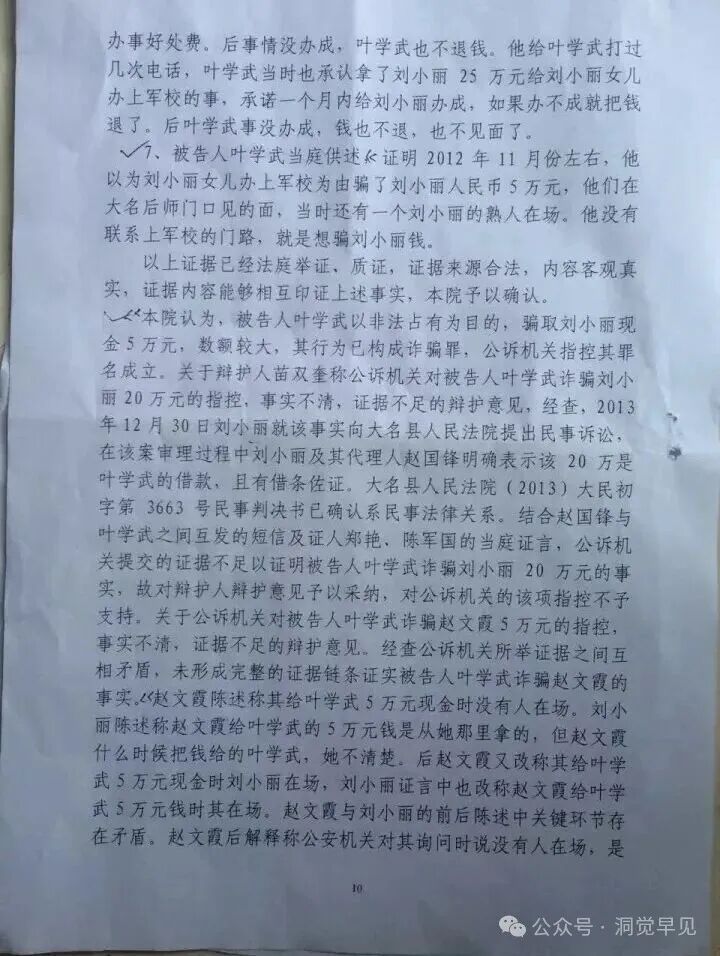 办事好处费。后事情没办成，叶学武也不退钱。他给叶学武打过
几次电话，叶学武当时也承认拿了刘小丽 25 万元给刘小丽女儿
办上军校的事，承诺一个月内给刘小丽办成，如果办不成就把钱
退了。后叶学武事没办成，钱也不退，也不见面了。
7、被告人叶学武当庭供述，证明 2012 年 11 月份左右，他
以为刘小丽女儿办上军校为由骗了刘小丽人民币 5 万元，他们在
大名后师门口见的面，当时还有一个刘小丽的熟人在场。他没有
联系上军校的门路，就是想骗刘小丽钱。
以上证据已经法庭举证、质证，证据来源合法，内容客观真
实，证据内容能够相互印证上述事实，本院予以确认。
本院认为，被告人叶学武以非法占有为目的，骗取刘小丽现
金 5 万元，数额较大，其行为已构成诈骗罪，公诉机关指控其罪
名成立。关于辩护人苗双奎称公诉机关对被告人叶学武诈骗刘小
丽 20 万元的指控，事实不清，证据不足的辩护意见，经查，2013
年 12 月 30 日刘小丽就该事实向大名县人民法院提出民事诉讼，
在该案审理过程中刘小丽及其代理人赵国锋明确表示该 20 万是
叶学武的借款，且有借条佐证。大名县人民法院（2013）大民初
字第 3663 号民事判决书已确认系民事法律关系。结合赵国锋与
叶学武之间互发的短信及证人郑艳、陈军国的当庭证言，公诉机
关提交的证据不足以证明被告人叶学武诈骗刘小丽 20 万元的事
实，故对辩护人辩护意见予以采纳，对公诉机关的该项指控不予
支持。关于公诉机关对被告人叶学武诈骗赵文霞 5 万元的指控，
事实不清，证据不足的辩护意见。经查公诉机关所举证据之间互
相矛盾，未形成完整的证据链条证实被告人叶学武诈骗赵文霞的
事实。赵文霞陈述称其给叶学武 5 万元现金时没有人在场。刘小
丽陈述称赵文霞给叶学武的 5 万元钱是从她那里拿的，但赵文霞
什么时候把钱给的叶学武，她不清楚。后赵文霞又改称其给叶学
武 5 万元现金时刘小丽在场，刘小丽证言中也改称赵文霞给叶学
武 5 万元钱时其在场。赵文霞与刘小丽的前后陈述中关键环节存
在矛盾。赵文霞后解释称公安机关对其询问时说没有人在场，是
10
公众号·洞觉早见